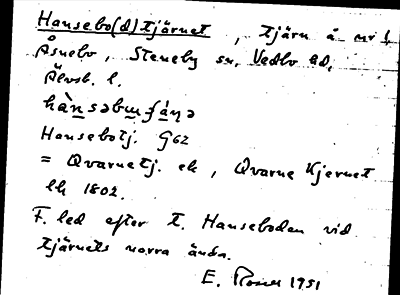 Hansebo(d)tjärnet, tjärn å nr 1
Åsnebo, Steneby sn, Vedbo hd,
Älvsb. l.
Hansebotj. G62
= Qvarnetj. ek, Qvarne Kjernet
lk 1802.
F. led efter t. Hanseboden vid
tjärnets norra ända.
E. 1951